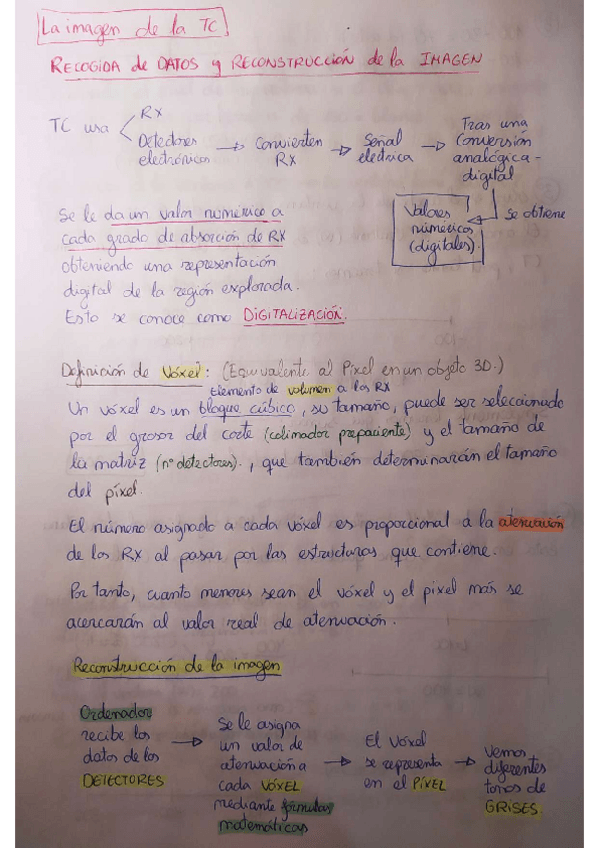 La imagen de la TC
RECOGIDA de DATOS y RECONSTRUCCIÓN de la IMAGEN
TC usa
RX
Detectores electrónicos → Convierten RX → Señal eléctrica → Tras una conversión analógica-digital
Se obtiene
Valores numéricos (digitales).
Se le da un valor numérico a
cada grado de absorción de RX
obteniendo una representación
digital de la región explorada.
Esto se conoce como DIGITALIZACIÓN.
Definición de Vóxel: (Equivalente al Píxel en un objeto 3D.)
Elemento de volumen a los RX
Un vóxel es un bloque cúbico, su tamaño, puede ser seleccionado
por el grosor del corte (colimador prepaciente) y el tamaño de
la matriz (nº detectores)., que también determinarán el tamaño
del píxel.
El número asignado a cada vóxel es proporcional a la atenuación
de los RX al pasar por las estructuras que contiene.
Por tanto, cuanto menores sean el vóxel y el píxel más se
acercarán al valor real de atenuación.
Reconstrucción de la imagen
Ordenador
recibe los
datos de los
DETECTORES
→ Se le asigna
un valor de
atenuación a
cada VÓXEL
mediante fórmulas
matemáticas
→ El Vóxel
se representa
en el PÍXEL
→ Vemos
diferentes
tonos de
GRISES.